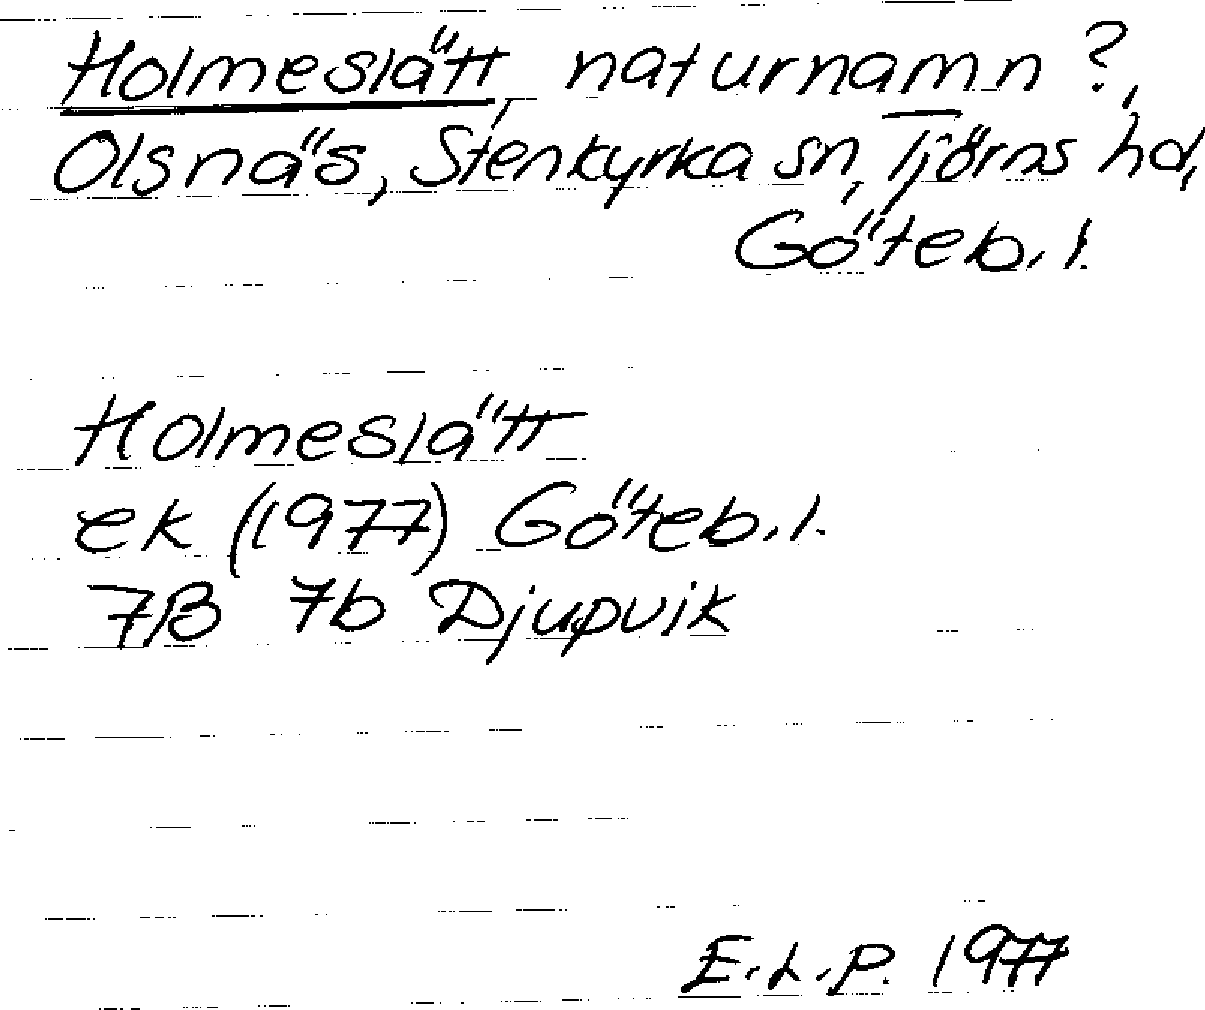 Holmeslätt, naturnamn?,
Olsnäs, Stenkyrka sn, Tjörns hd,
Göteb. l.
Holmeslätt
ek (1977) Göteb. l.
7B 7b Djupvik
E.L.P. 1977